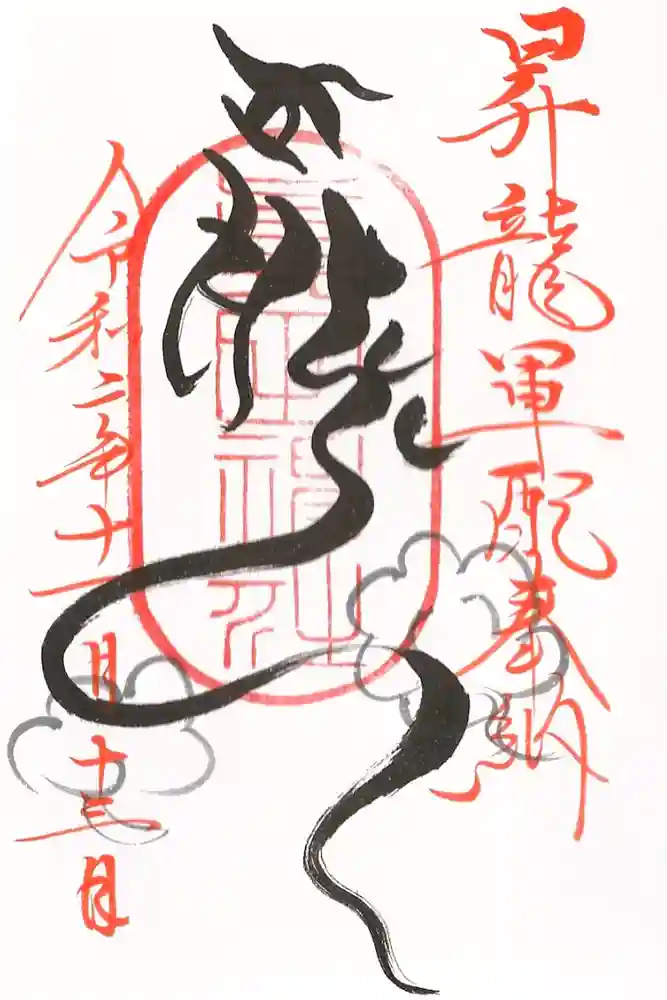 昇龍軍配奉納
龍
令和二年十一月十三日